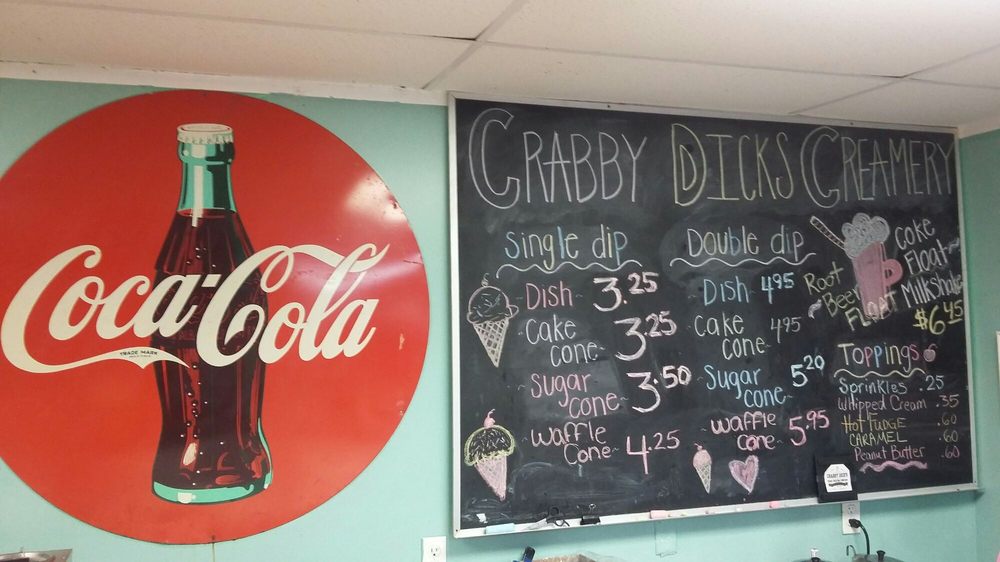 Coca-Cola
TRADE MARK
CRABBY DICKS CREAMERY
Single dip
Dish 3.25
Cake cone 3.25
Sugar cone 3.50
Waffle Cone 4.25
Double dip
Dish 4.95
Cake cone 4.95
Sugar cone 5.20
Waffle cone 5.95
Root
Beer
Float
Coke
Float
Milkshake
$6.45
Toppings
Sprinkles .25
Whipped Cream .35
Hot Fudge .60
CARAMEL .60
Peanut Butter .60
CRABBY DICK'S